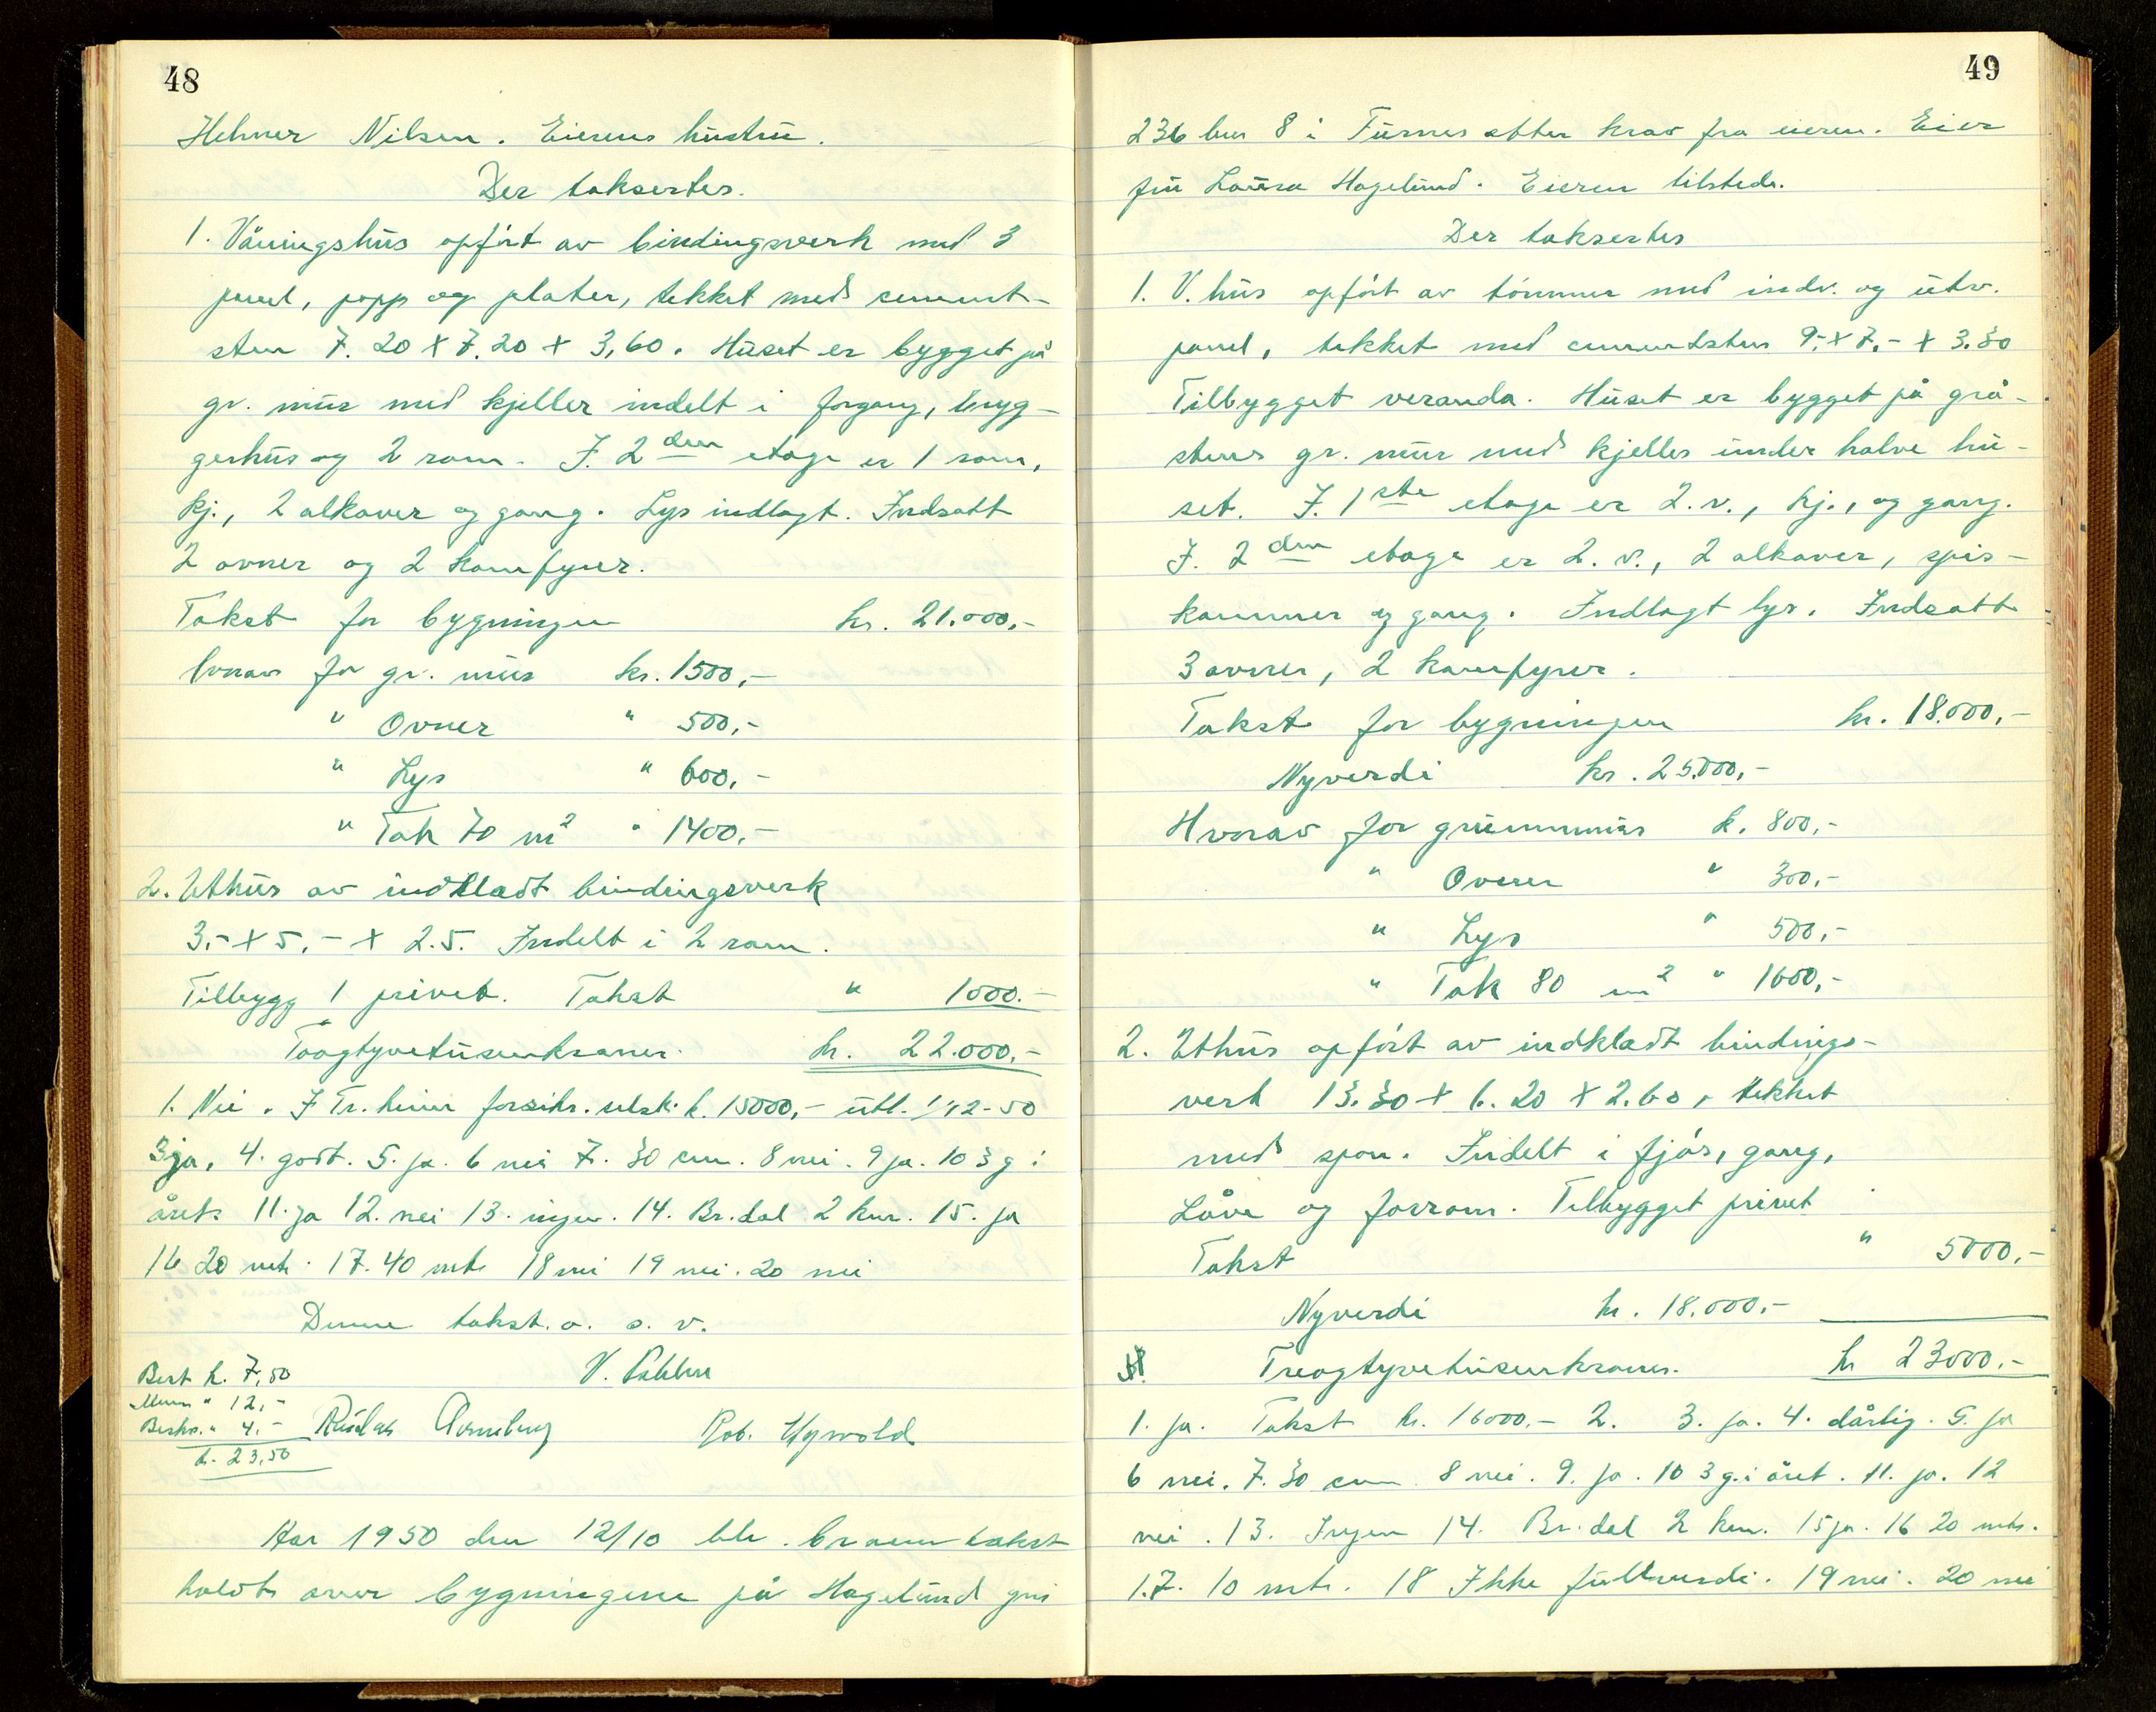 48
Helmer Nilsen. Eierens hustru.
Der taksertes.
1. Våningshus opført av bindingsverk med 3
panel, papp og plater, tekket med cement-
sten 7.20 x 7.20 x 3,60. Huset er bygget på
gr. mur med kjeller indelt i forgang, bryg-
gerhus og 2 rom. I. 2den etage er 1 rom,
kj., 2 alkover og gang. Lys indlagt. Indsatt
2 ovner og 2 komfyrer.
Takst for bygningen kr. 21.000,-
hvorav for gr. mur kr. 1500,-
" Ovner " 500,-
" Lys " 600,-
" Tak 70 m2 " 1400,-
2. Uthus av indkledt bindingsverk
3,- x 5,- x 2.5. Indelt i 2 rom.
Tilbygg 1 privet. Takst " 1000.-
Toogtyvetusenkroner. kr. 22.000,-
1. Nei. I Tr. heim forsikr. selsk. k. 15000,- utl. 1/12-50
3 ja, 4. godt. 5. ja. 6 nei 7. 30 cm. 8 nei. 9 ja. 10 3 g i
året. 11. ja 12. nei 13. ingen. 14. Br.dal 2 km. 15. ja
16 20 mtr. 17. 40 mtr 18 nei 19 nei. 20 nei
Denne takst. o. s. v.
Best k. 7,50
" 12,-
Beskr. " 4.-
k. 23,50
Rob. Hynvold
Aar 1950 den 12/10 ble branntakst
holdt over bygningene på Hagelund gnr
49
236 bnr 8 i Furnes etter krav fra eieren. Eier
fru Laura Hagelund. Eieren tilstede.
Der taksertes
1. V. hus opført av tømmer med indv. og utv.
panel, tekket med cementsten 9,- x 7,- x 3.30
Tilbygget veranda. Huset er bygget på grå-
stens gr. mur med kjeller under halve hu-
set. I. 1ste etage er 2. v., kj., og gang.
I. 2den etage er 2. v., 2 alkover, spis-
kammer og gang. Indlagt lys. Indsatt
3 ovner, 2 komfyrer.
Takst for bygningen kr. 18.000,-
Nyverdi kr. 25.000,-
Hvorav for grunnmur k. 800,-
" Ovner " 300,-
" Lys " 500,-
" Tak 80 m2 " 1600,-
2. Uthus opført av indkledt bindings-
verk 13.30 x 6.20 x 2.60, tekket
med spon. Indelt i fjøs, gang,
Låve og forrom. Tilbygget privet
Takst " 5000,-
Nyverdi kr. 18.000,-
Treogtyvetusenkroner. kr 23000.-
1. ja. Takst kr. 16000.- 2. 3. ja. 4. dårlig. 5. ja
6 nei. 7. 30 cm. 8 nei. 9. ja. 10 3 g. i året. 11. ja. 12
nei. 13. Ingen 14. Br.dal 2 km. 15 ja. 16 20 mtr.
17. 10 mtr. 18 Ikke fullverdi. 19 nei. 20 nei